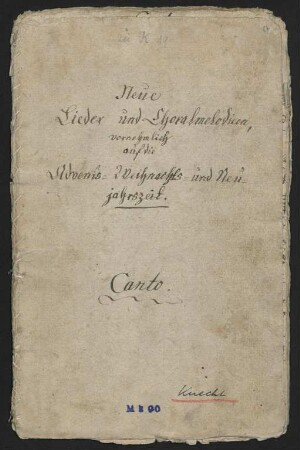 Neue
Lieder und Choralmelodien,
vornehmlich
auf die
Advents- Weihnachts- und Neu-
jahrszeit.
Canto.
Knecht